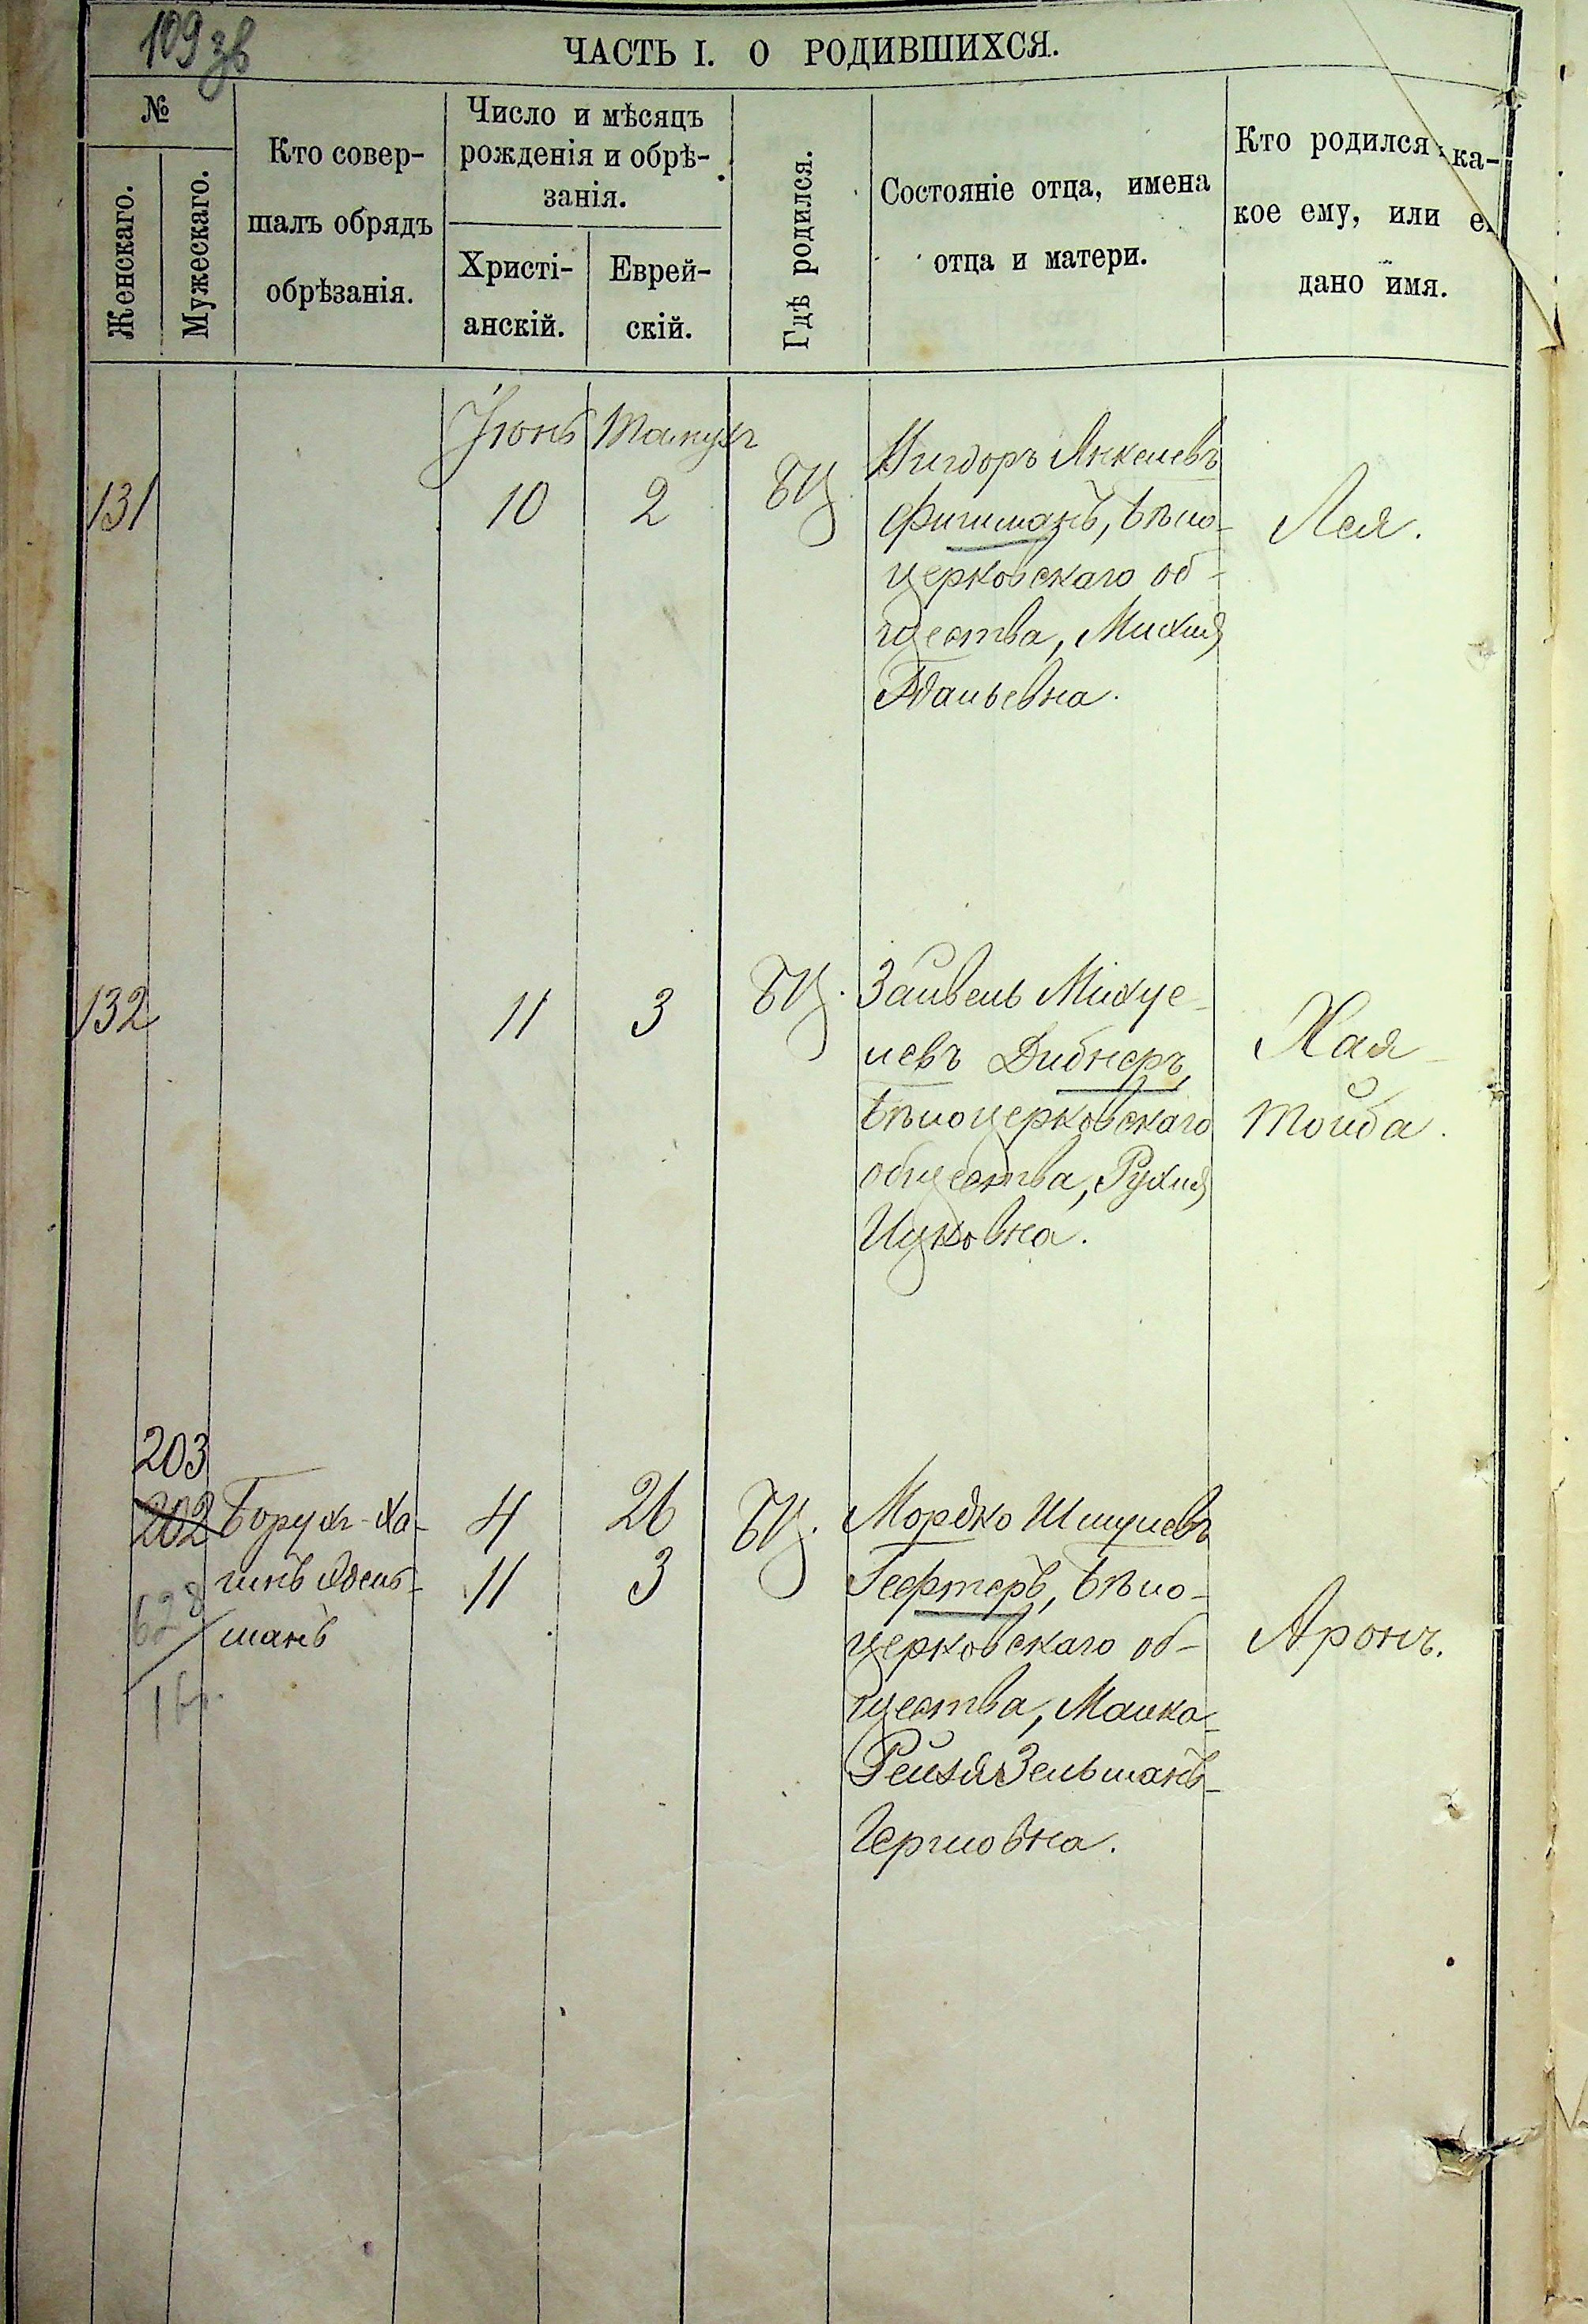 109 зв
ЧАСТЬ I. О РОДИВШИХСЯ.
№
Женскаго.
Мужескаго.
Кто совер-
шалъ обрядъ
обрѣзанія.
Число и мѣсяцъ
рожденія и обрѣ-
занія.
Христі-
анскій.
Еврей-
скій.
Гдѣ родился.
Состояніе отца, имена
отца и матери.
Кто родился ка-
кое ему, или е
дано имя.
Іюнь Тамузъ
131
10 2
БЦ
Вигдоръ Янкелевъ
Фишманъ, Бѣло-
церковскаго об-
щества, Михля
Гдальевна.
Лея.
132
11 3
БЦ.
Зайвель Михуе-
левъ Дибнеръ,
Бѣлоцерковскаго
общества, Рухля
Ицковна.
Хая-
Тойба.
203
202
628
Борухъ-Ха-
имъ Адель-
манъ
4 26
11 3
БЦ.
Мордко Шмулевъ
Гефтеръ, Бѣло-
церковскаго об-
щества, Малка-
Рейзя Зельманъ-
Гершовна.
Аронъ.